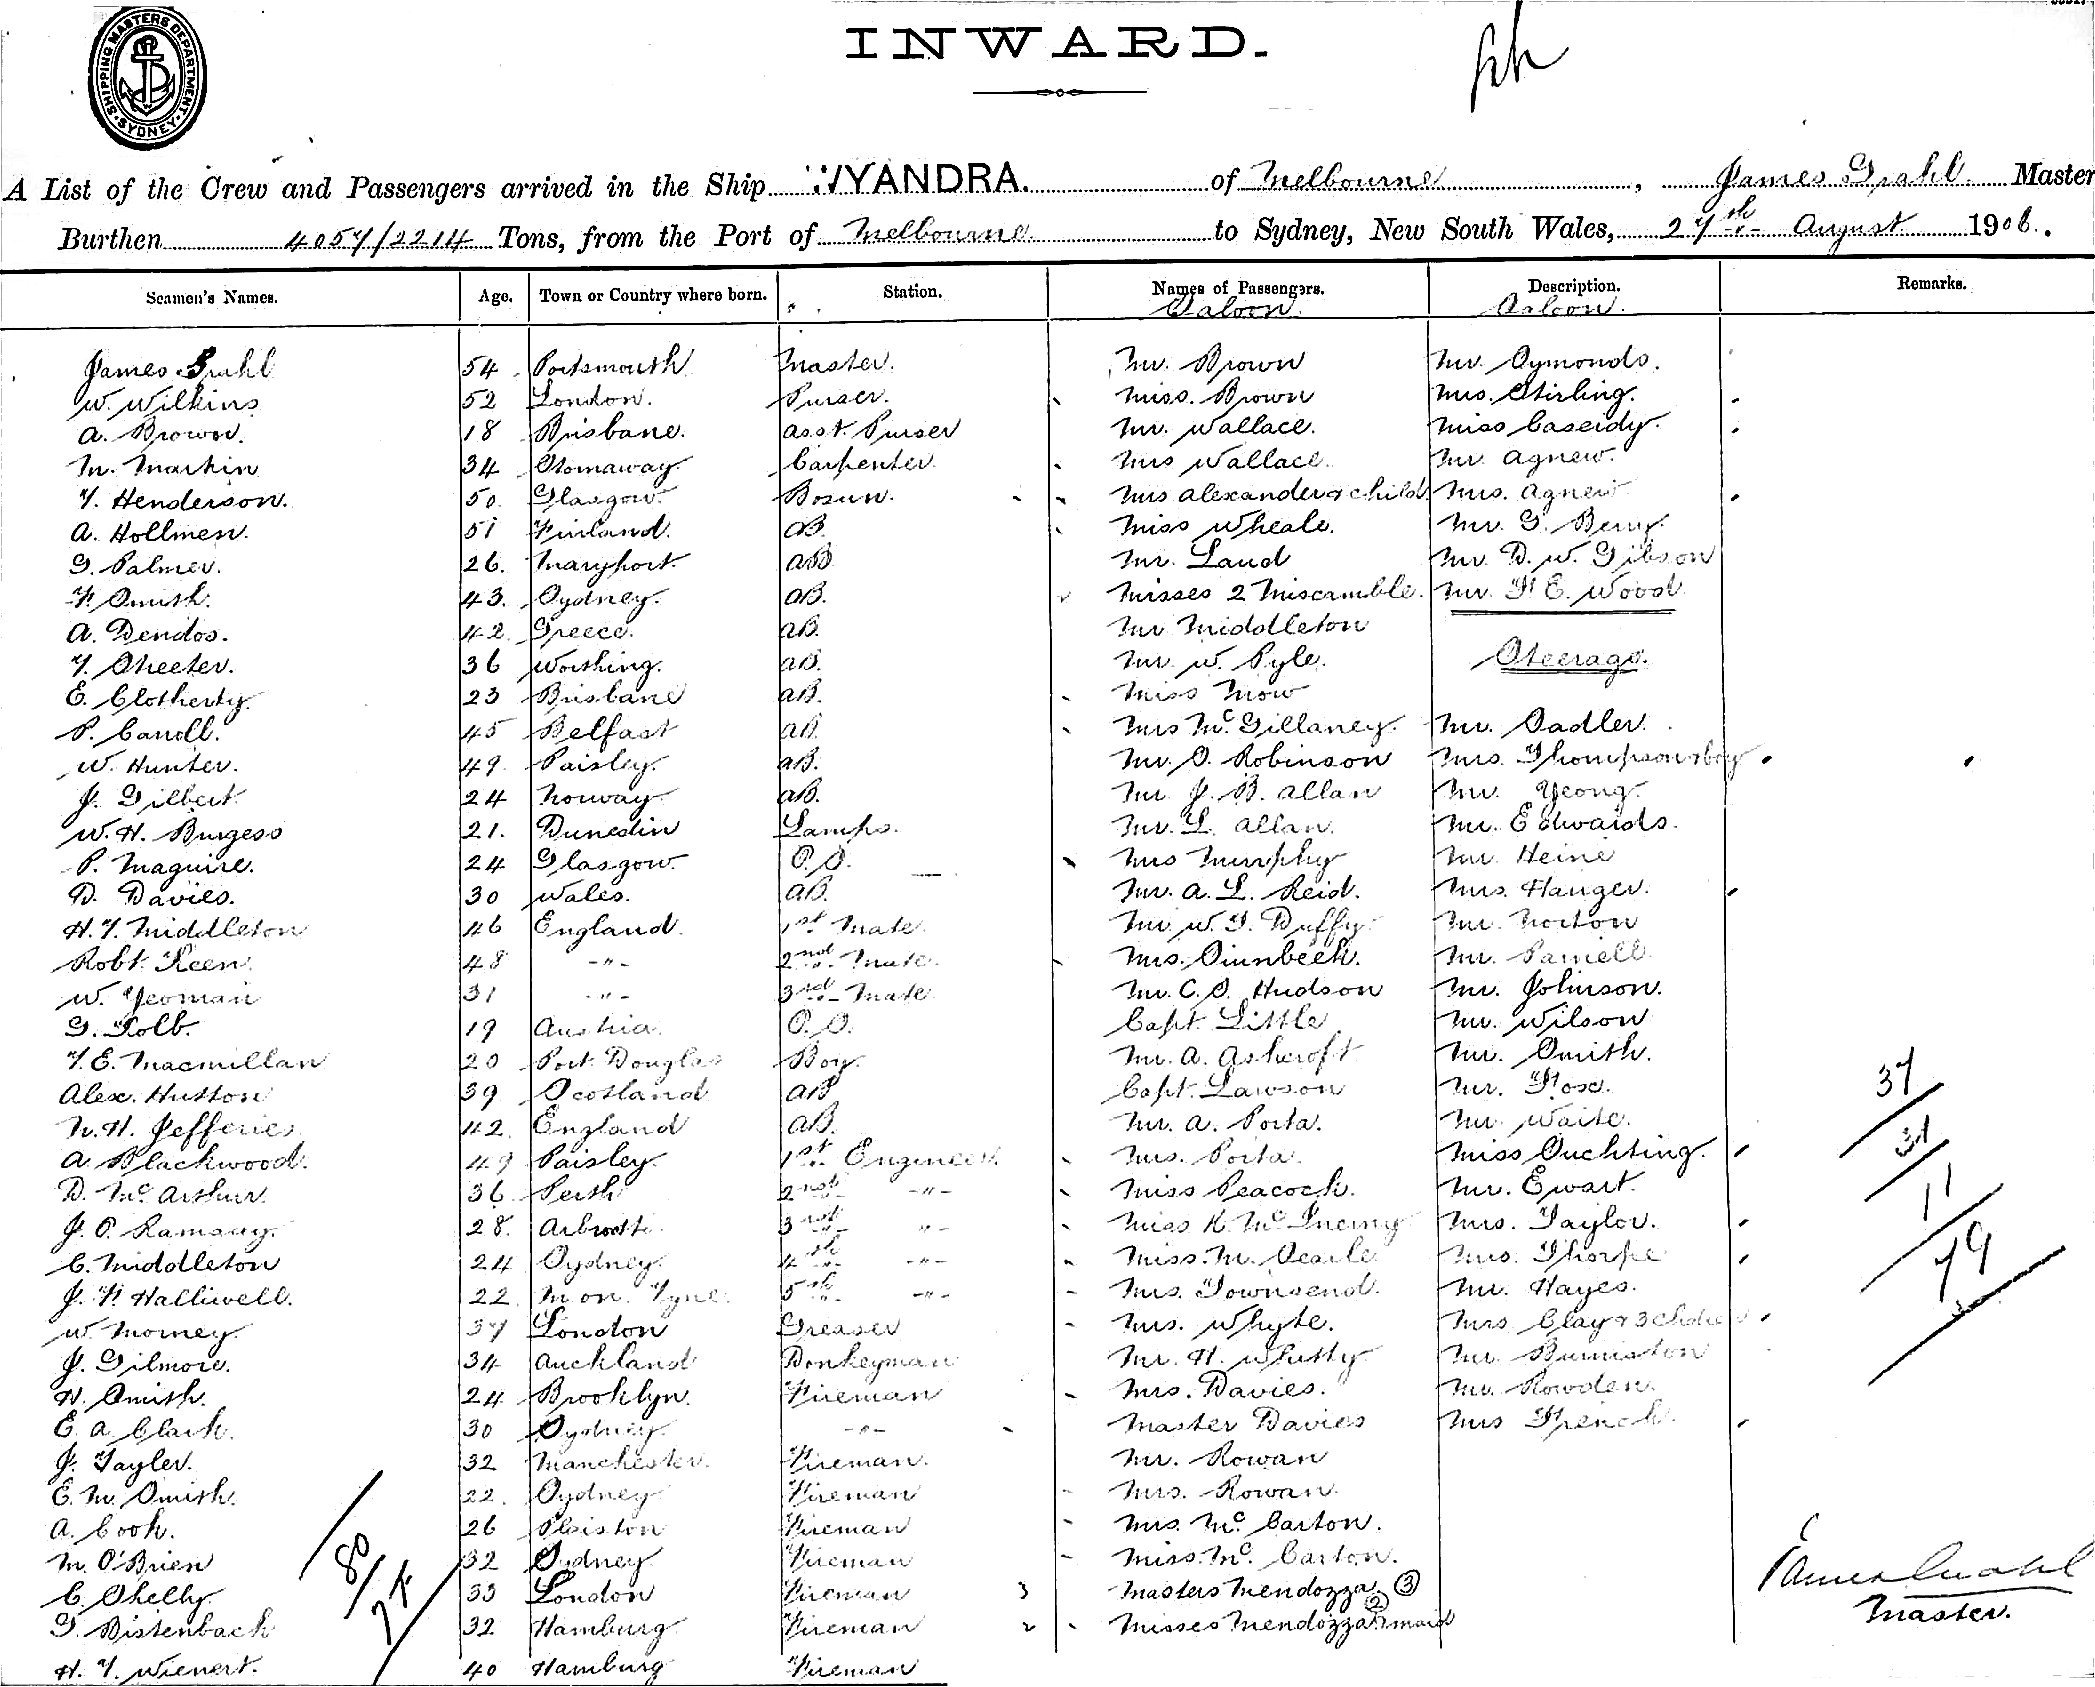 SHIPPING MASTERS DEPARTMENT
SYDNEY
INWARD.
A List of the Crew and Passengers arrived in the Ship WYANDRA. of Melbourne, James Grahl Master
Burthen 4057/2214 Tons, from the Port of Melbourne to Sydney, New South Wales, 27th August 1906.
Seamen's Names. Age. Town or Country where born. Station. Names of Passengers. Description. Remarks.
Saloon. Saloon.
James Grahl 54 Portsmouth Master. Mr. Brown Mr. Symonds.
W. Wilkins 52 London. Purser. Miss. Brown Mrs. Stirling.
A. Brown. 18 Brisbane. Asst. Purser Mr. Wallace. Miss Cassidy.
M. Martin 34 Stornaway. Carpenter. Mrs Wallace. Mr. Agnew.
T. Henderson. 50. Glasgow. Bosun. Mrs Alexander & child Mrs. Agnew
A. Hollmen. 51 Finland. AB. Miss Wheale. Mr. G. Berry.
G. Palmer. 26. Maryport. AB Mr. Laud Mr. D. W. Gibson
F Smith. 43. Sydney. AB. Misses 2 Miscamble. Mr. F E. Wood
A. Dendos. 42. Greece. AB. Mr Middleton
T. Sheeter. 36 Worthing. AB. Mr. W. Pyle. Steerage.
E. Clotherty. 23 Brisbane AB. Miss Mow
P. Caroll. 45 Belfast AB. Mrs McGillaney. Mr. Sadler.
W. Hunter. 49. Paisley. AB. Mr. S. Robinson Mrs. Thompson & boy
J. Gilbert. 24 Norway. AB. Mr J. B. Allan Mr. Yeong.
W. H. Burgess 21. Dunedin Lamps. Mr. L. Allan. Mr. Edwards.
P. Maguire. 24 Glasgow. O.S. Mrs Murphy Mr. Heine
D. Davies. 30 Wales. AB. Mr. A. L. Reid. Mrs. Hanger.
H. T. Middleton 46 England. 1st Mate. Mr W. G. Duffy. Mr. Norton
Robt. Keen. 48 -"- 2nd Mate. Mrs. Sinnbeck. Mr. Parnell.
W. Yeoman 31 -"- 3rd Mate Mr. C. S. Hudson Mr. Johnson.
G. Kolb. 19 Austria. O.S. Capt. Little Mr. Wilson
T. E. Macmillan 20 Port Douglas Boy. Mr. A. Ashcroft Mr. Smith.
Alex. Hutton 39 Scotland AB Capt. Lawson Mr. Fox.
W. H. Jefferies 42. England AB. Mr. A. Porta. Mr. Waite.
A. Blackwood. 49 Paisley. 1st Engineer. Mrs. Porta. Miss Suchting.
D. McArthur. 36 Perth 2nd -"- Miss Peacock. Mr. Ewart.
J. P. Ramsay. 28. 3rd -"- Miss K. McInerny Mrs. Taylor.
C. Middleton 24 Sydney. 4th -"- Miss. M. Searle Mrs. Thorpe
J. F. Halliwell. 22. N on. Tyne. 5th -"- Mrs. Townsend. Mr. Hayes.
W. Morney. 37 London Greaser Mrs. Whyte. Mrs Clay & 3 chdn
J. Gilmore. 34 Auckland Donkeyman Mr. H. Whitty. Mr. Burniston
H. Smith. 24 Brooklyn. Fireman Mrs. Davies. Mr. Rowden.
E. A. Clark. 30 Sydney. -"- Master Davies Mrs French.
J. Tayler. 32 Manchester. Fireman. Mr. Rowan
E. M. Smith. 22. Sydney Fireman Mrs. Rowan.
A. Cook. 26 Plaistow Fireman Mrs. McCarton.
M. O'Brien 32 Sydney Fireman Miss. McCarton.
C. Skelly. 33 London Fireman 3 Masters Mendozza. 3
G. Bistenbach 32 Hamburg. Fireman 2 Misses Mendozza 2 & maid
H. T. Wienert. 40 Hamburg Fireman
37
31
11
79
80
74
James Grahl
Master.